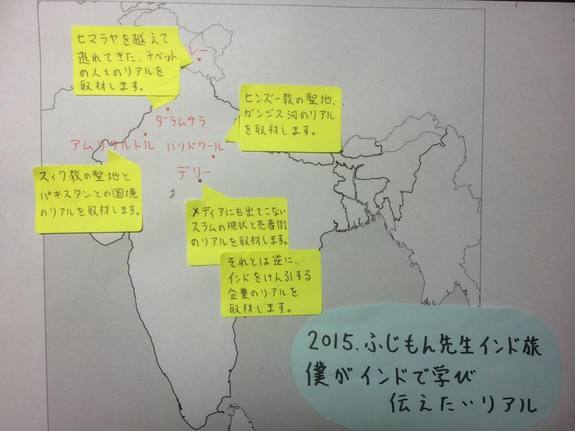 ヒマラヤを越えて
逃れてきた、チベット
の人々のリアルを
取材します。
ー
ダラムサラ
ヒンズー教の聖地、
ガンジス河のリアル
を取材します。
アムリツァルトル
ハリドワール
デリー
スィク教の聖地と
パキスタンとの国境
のリアルを取材します。
メディアにも出てこない
スラムの現状と売春街
のリアルを取材します。
それとは逆に、
インドをけん引する
企業のリアルを
取材します。
2015.ふじもん先生インド旅
僕がインドで学び
伝えたいリアル